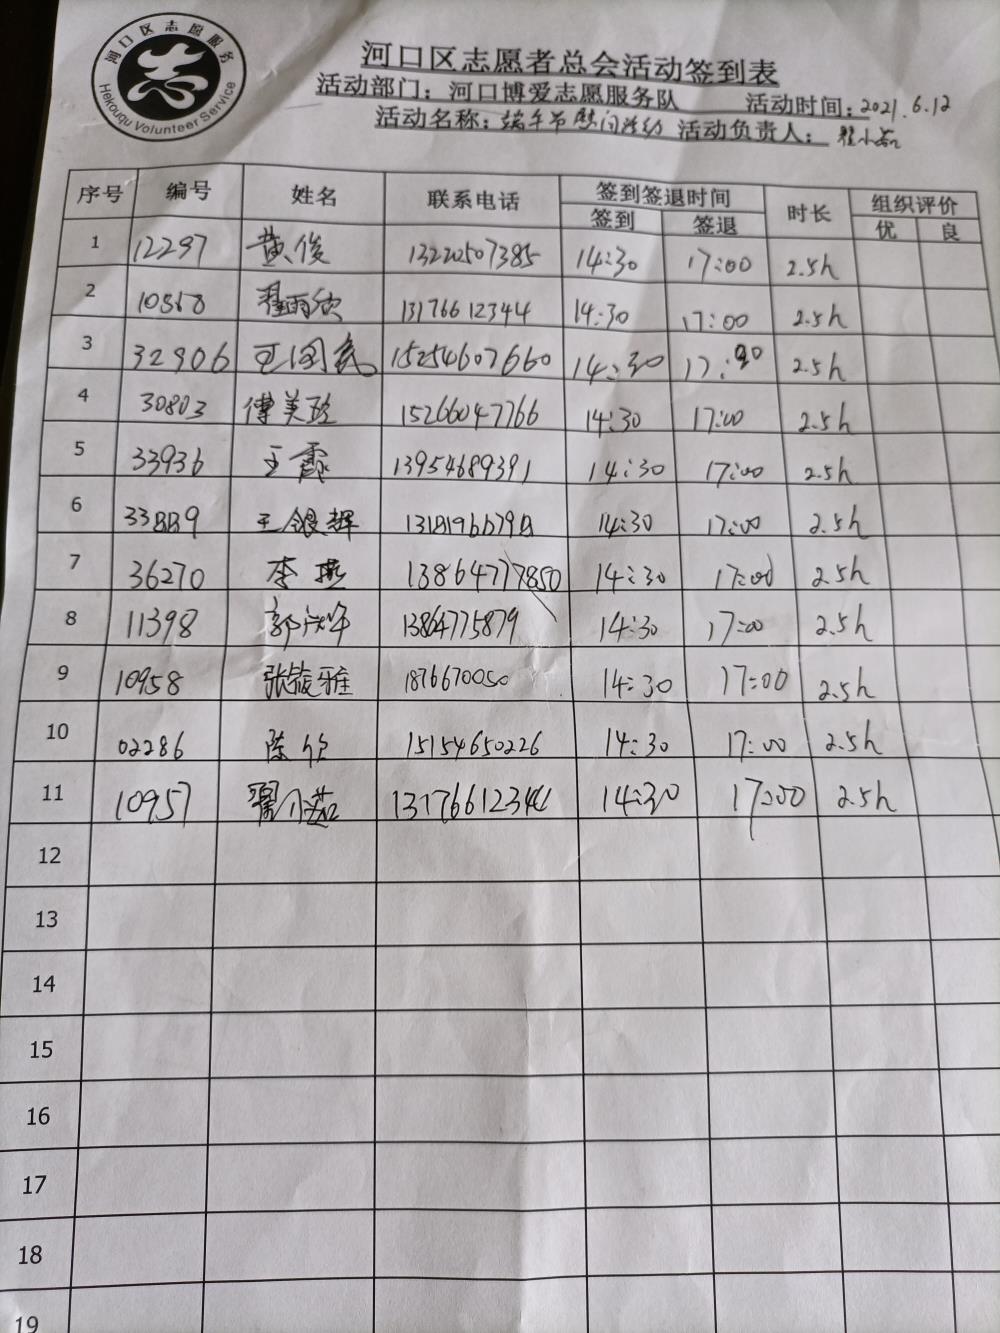 河口区志愿服务
Hekouqu Volunteer Service
河口区志愿者总会活动签到表
活动部门：河口博爱志愿服务队 活动时间：2021.6.12
活动名称：端午节慰问活动 活动负责人：翟小茹
序号 编号 姓名 联系电话 签到签退时间 时长 组织评价
签到 签退 优 良
1 12297 黄俊 13220507385 14:30 17:00 2.5h
2 10368 程雨欣 13176612344 14:30 17:00 2.5h
3 32906 王国民 15254607660 14:30 17:00 2.5h
4 30803 傅美玲 15266047766 14:30 17:00 2.5h
5 33936 王霞 13954689391 14:30 17:00 2.5h
6 33889 王银辉 14:30 17:00 2.5h
7 36270 李燕 13864777850 14:30 17:00 2.5h
8 11398 郭 13864775879 14:30 17:00 2.5h
9 10958 张雅 1876670050 14:30 17:00 2.5h
10 02286 陈 15154650226 14:30 17:00 2.5h
11 10957 翟小茹 13176612344 14:30 17:00 2.5h
12
13
14
15
16
17
18
19